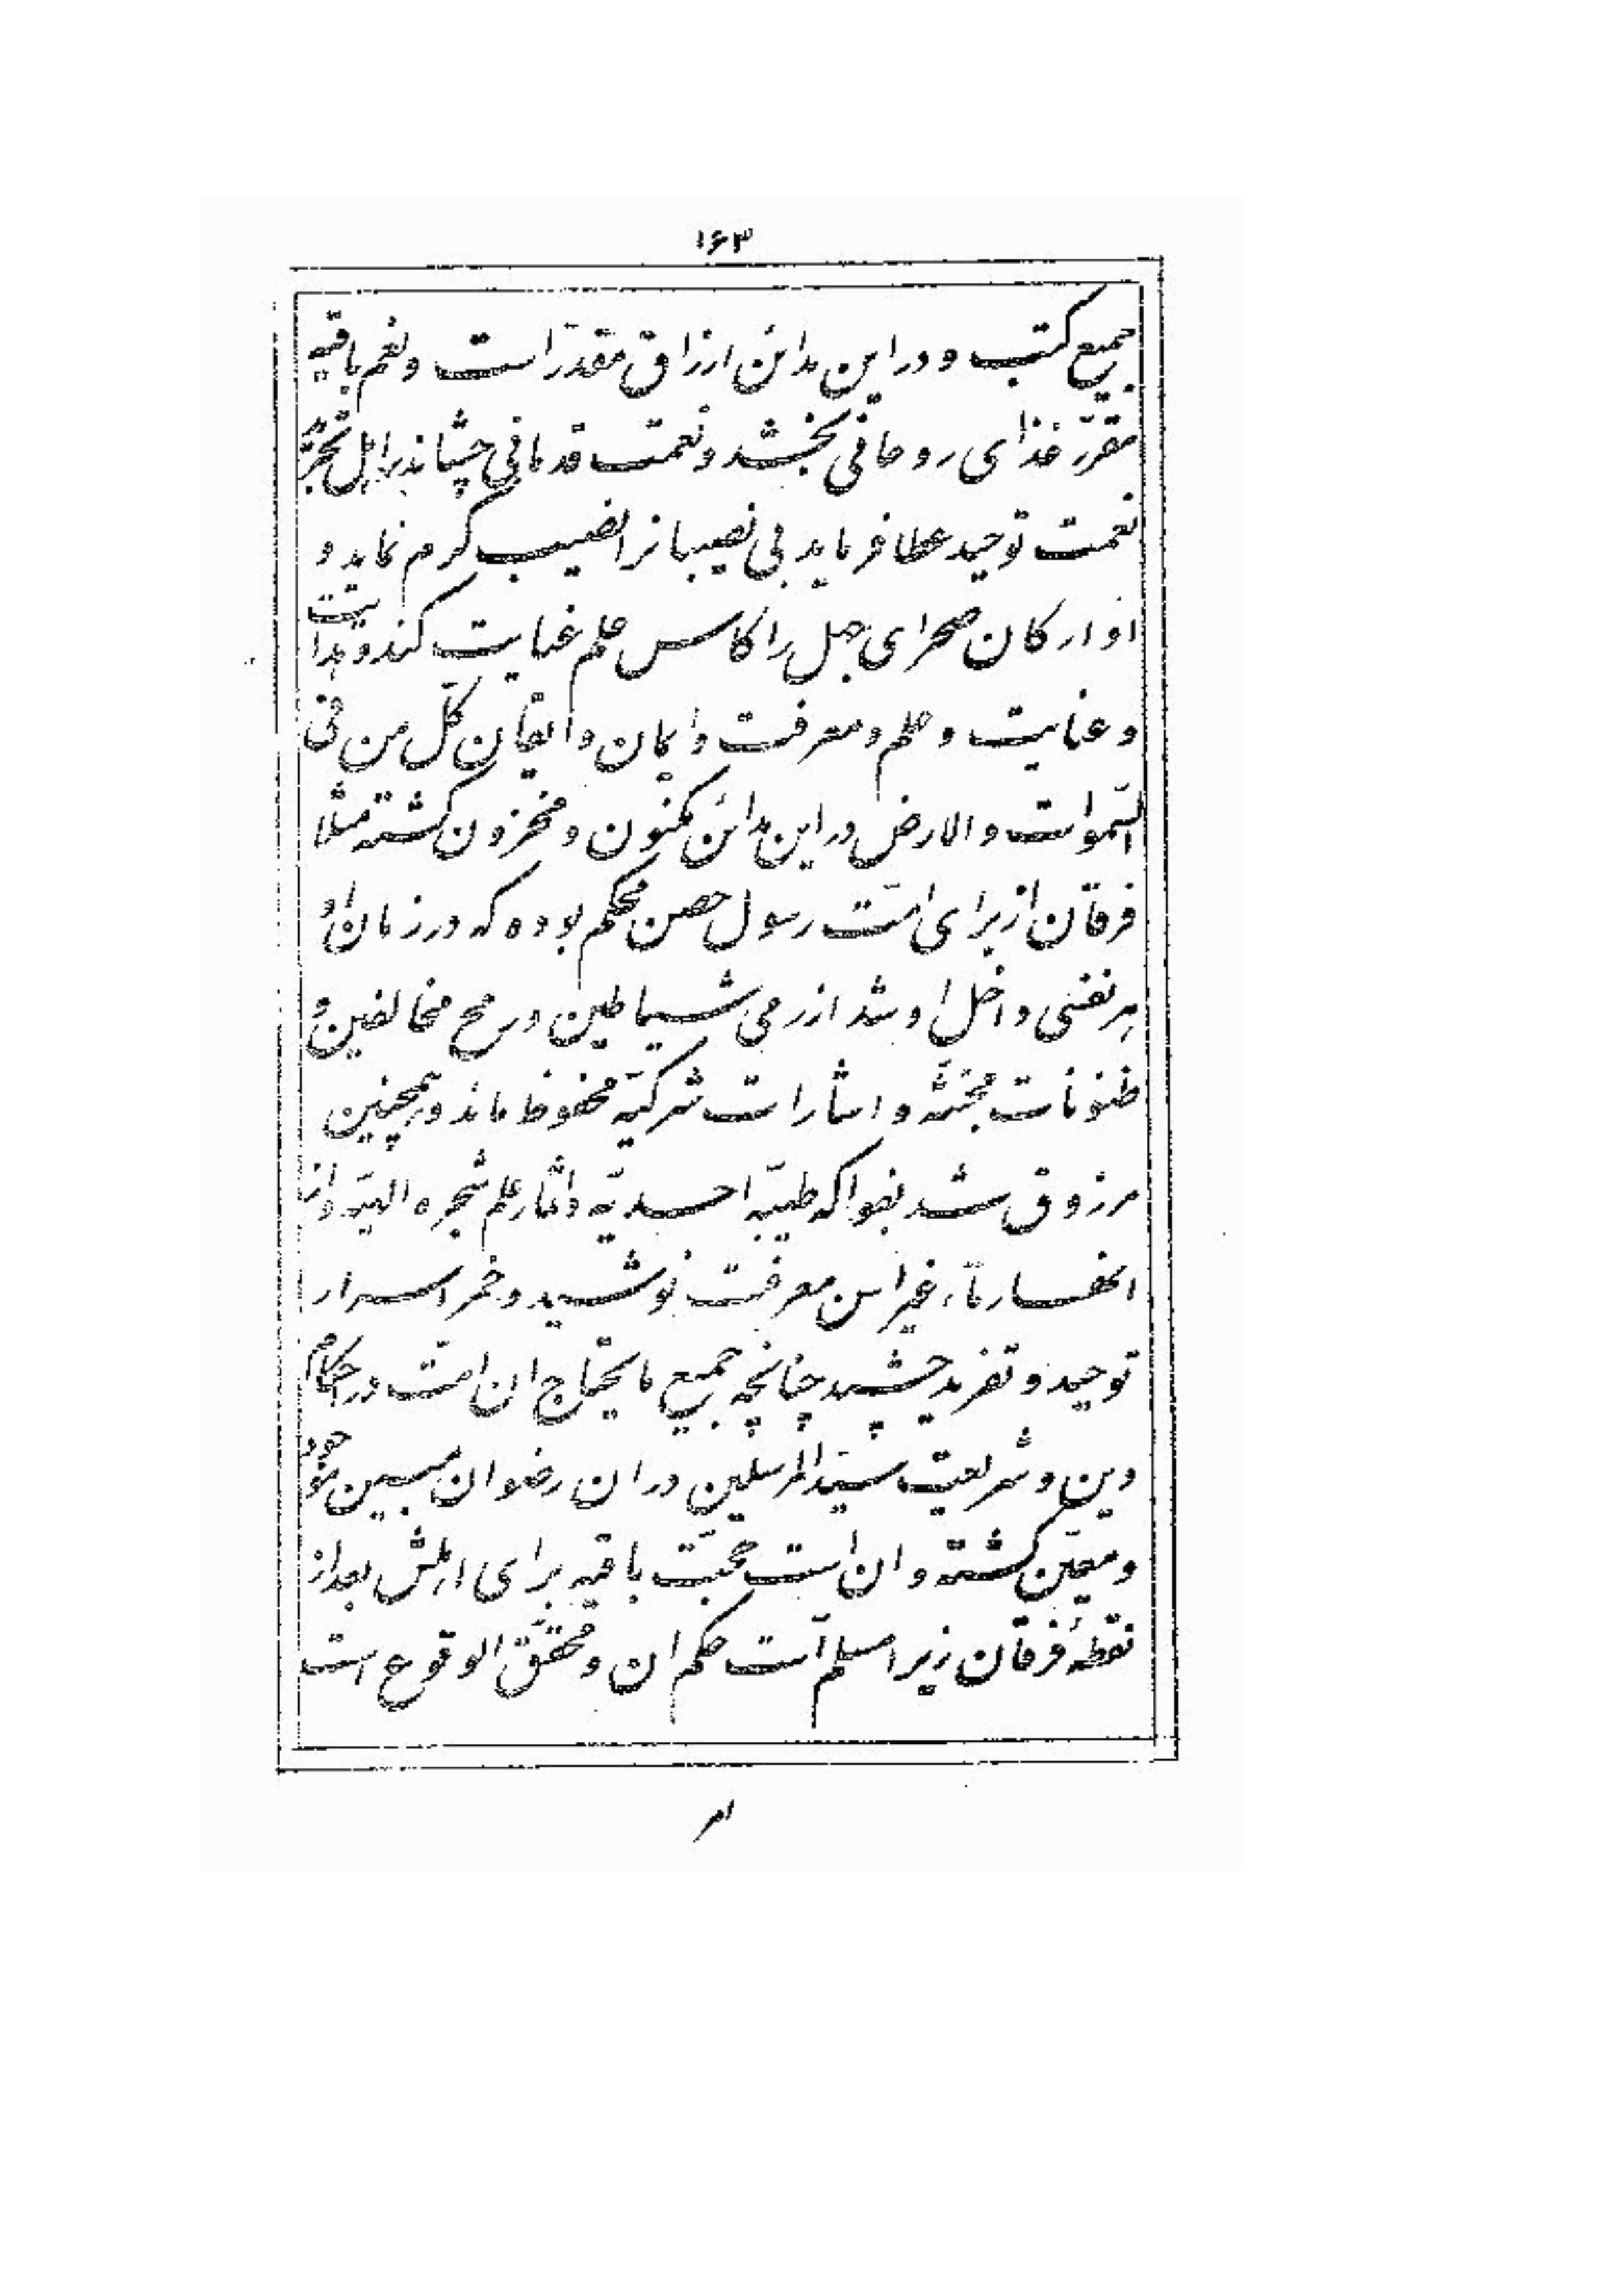 ۱۶۳
جمیع کتب و در این مدائن ارزاق مقدّر است و نعم باقیه
مقرّر غذای روحانی بخشد و نعمت قدمانی چشاند بر اهل تجرّد
نعمت توحید عطا فرماید بی نصیبانرا نصیب کرم نماید و
اوارکان صحرای جهل را کاس علم عنایت کند و هدایت
و عنایت و علم و معرفت و ایمان و ایقان کلّ من فی
السّموات و الارض در این مدائن مکنون و مخزون کشته مثلا
فرقان از برای امّت رسول حصن محکم بوده که در زمان او
هر نفسی داخل او شد از رمی شیاطین و رمح مخالفین و
ظنونات مجتثّه و اشارات شرکیّه محفوظ ماند و همچنین
مرزوق شد بفواکه طیّبه احدیّه و اثمار علم شجره الهیّه و از
انهار ماء غیر اسن معرفت نوشید و خمر اسرار
توحید و تفرید چشید چنانچه جمیع ما یحتاج ان امّت در احکام
دین و شریعت سیّد المرسلین در ان رضوان مبین موجود
و معیّن کشته و ان است حجّت باقیه برای اهلش بعد از
نقطهٔ فرقان زیرا مسلم است حکم ان و محقّق الوقوع است
امر